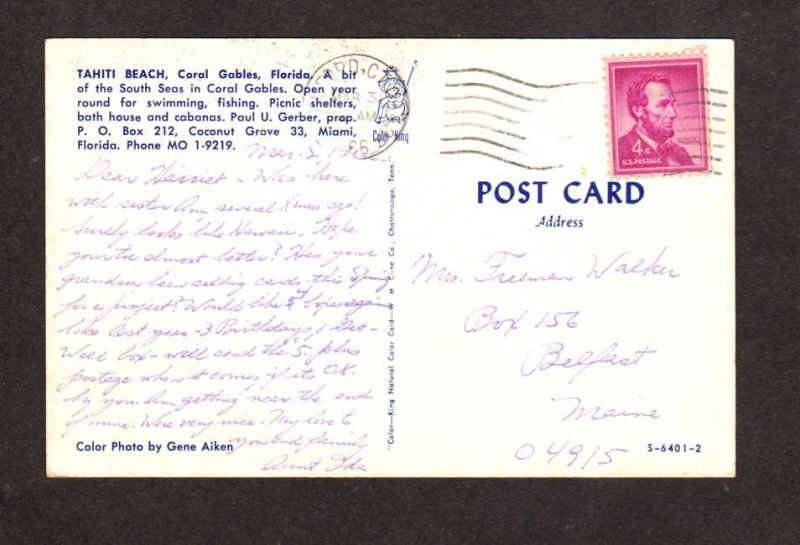 TAHITI BEACH, Coral Gables, Florida. A bit
of the South Seas in Coral Gables. Open year
round for swimming, fishing. Picnic shelters,
bath house and cabanas. Paul U. Gerber, prop.
P. O. Box 212, Coconut Grove 33, Miami,
Florida. Phone MO 1-9219.
Mar. 2, 19
Dear Harriet - Was here
with sister Ann several Xmas ago!
Surely looks like Hawaii. Hope
your I'm almost better? Has your
grandson been selling cards this Spring
for a project? Would like 5 boxes again
like last year - 3 Birthdays, 1 Get-
Well box - will send the $5. plus
postage when it comes if its O.K.
by you. Am getting near the end
of mine. Were very nice. My love to
you and family
Aunt Ida
Color Photo by Gene Aiken
MAR 3
AM
66
Color King
"Color-King Natural Color Card—W. M. Cline Co., Chattanooga, Tenn.
4¢
U.S. POSTAGE
LINCOLN
POST CARD
Address
Mrs. Freeman Walker
Box 156
Belfast
Maine
04915
S-6401-2